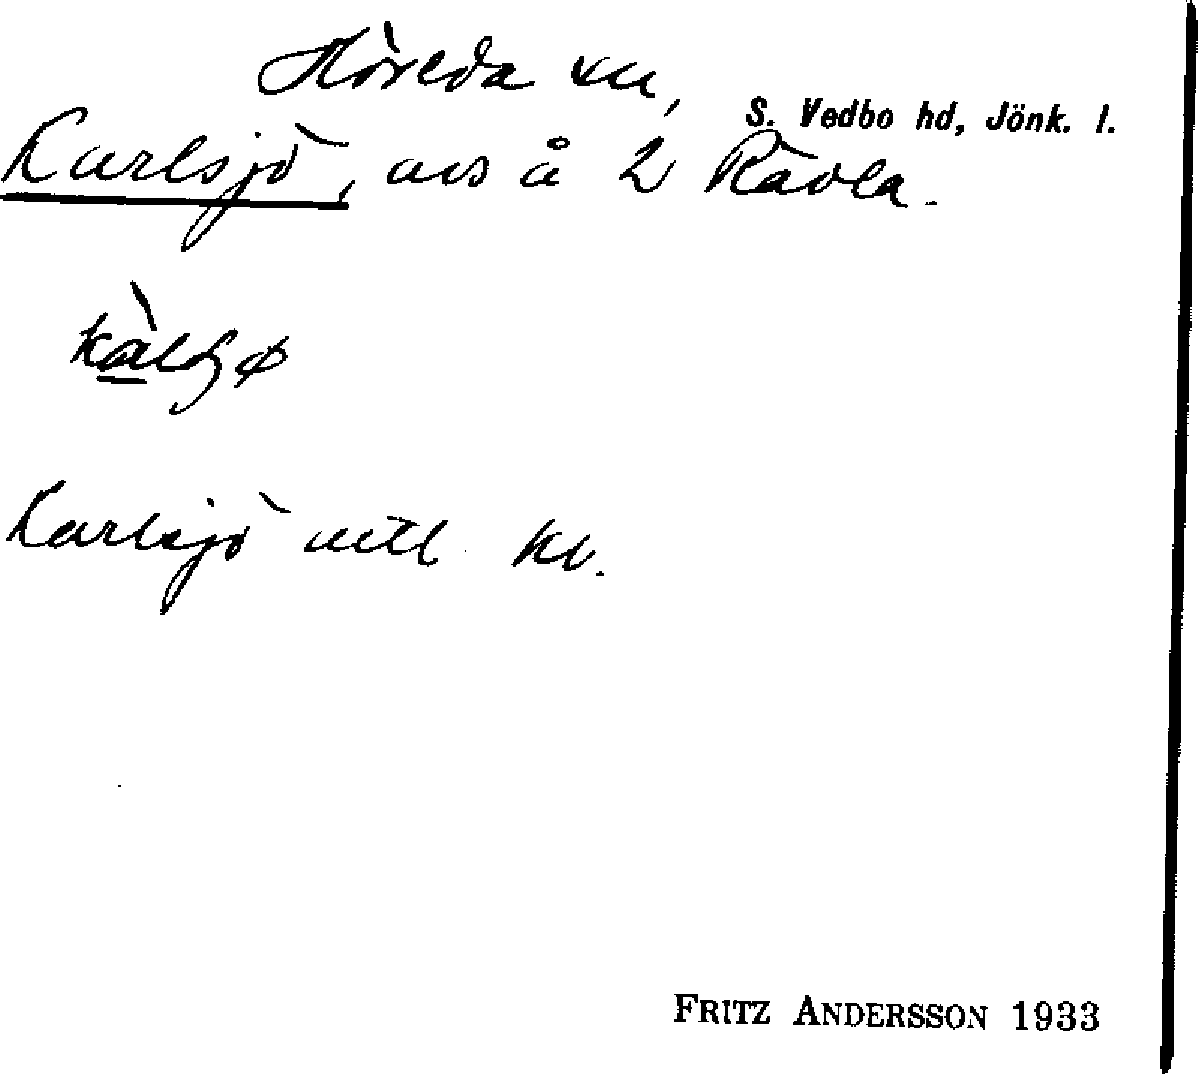 Höreda sn,
S. Vedbo hd, Jönk. l.
Karlsjö, avs å 2 Rävla.
Karlsjö uttl kv.
FRITZ ANDERSSON 1933